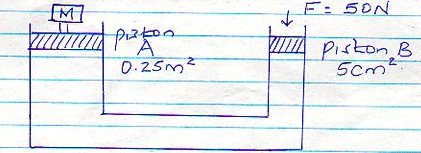 M
piston
A
0.25m²
F = 50N
piston B
5cm².